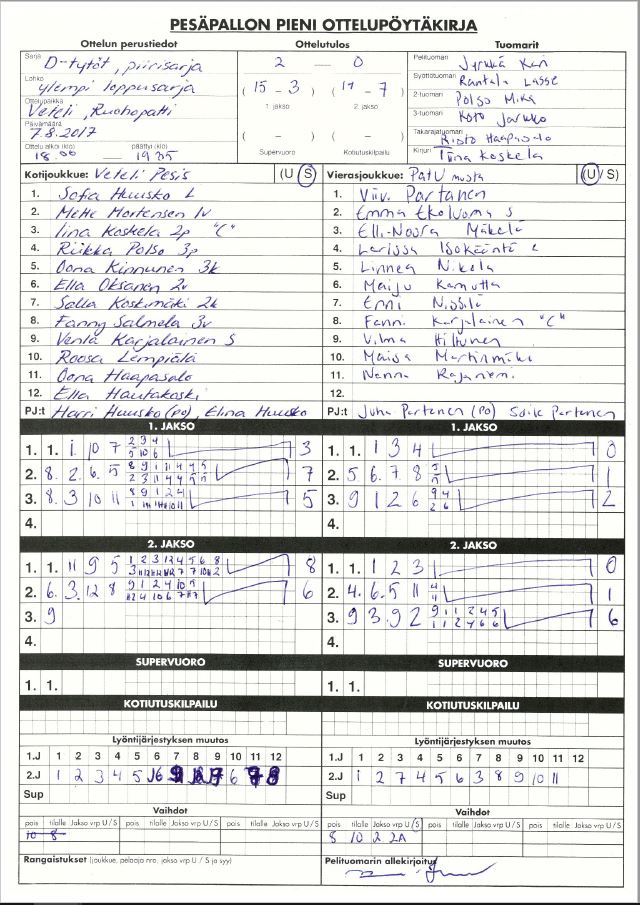 PESÄPALLON PIENI OTTELUPÖYTÄKIRJA
Ottelun perustiedot
Ottelutulos
Tuomarit
Sarja D-tytöt, piirisarja
Lohko ylempi loppusarja
Ottelupaikka Veteli, Ruohopatti
Päivämäärä 7.8.2017
Ottelu alkoi (klo) 18.00 päättyi (klo) 19.05
2 — 0
(15 - 3) (14 - 7)
1. jakso 2. jakso
( - ) ( - )
Supervuoro Kotiutuskilpailu
Pelituomari Jyrkkä Kari
Syöttötuomari Rantala Lasse
2-tuomari Polso Mika
3-tuomari Koto Jarkko
Takarajatuomari Risto Haapasalo
Kirjuri Tiina Koskela
Kotijoukkue: Veteli Pesis (U S)
1. Sofia Huusko L
2. Mette Mortensen 1v
3. Iina Koskela 2p "C"
4. Riikka Polso 3p
5. Oona Kinnunen 3k
6. Ella Oksanen 2v
7. Salla Koskimäki 2k
8. Fanny Salmela 3v
9. Venla Karjalainen S
10. Roosa Lempiälä
11. Oona Haapasalo
12. Ella Hautakoski
PJ:t Harri Huusko (PO), Elina Huusko
Vierasjoukkue: PattU musta (U / S)
1. Viivi Partanen
2. Emma Ekoluoma S
3. Elli-Noora Mäkelä
4. Larissa Isokääntä
5. Linnea Nikola
6. Maiju Kamutta
7. Enni Nissilä
8. Fanni Karjalainen "C"
9. Vilma Hiltunen
10. Maisa Martinmäki
11. Nanna Rajaniemi
12.
PJ:t Juha Partanen (PO) Satu Partanen
1. JAKSO
1. 1. 1. 10 7 2 3 4 3
5 10 6
2. 8. 2. 6. 5 8 9 1 11 4 4 5 7
3. 8. 3 10 11 8 9 1 2 4 5
4.
1. JAKSO
1. 1. 1 3 4 0
2. 5 6. 7 8 1
3. 9 1 2 6 9 4 2
2 6
4.
2. JAKSO
1. 1. 11 9 5 1 2 3 12 4 5 6 8 8
2. 6. 3. 12 8 9 1 2 4 10 5 6
3. 9
4.
2. JAKSO
1. 1. 1 2 3 0
2. 4. 6. 5 11 1
3. 9 3. 9 2 9 1 1 2 4 5 6
1 1 2 4 6 6
4.
SUPERVUORO
1. 1.
SUPERVUORO
1. 1.
KOTIUTUSKILPAILU
KOTIUTUSKILPAILU
Lyöntijärjestyksen muutos
1.J 1 2 3 4 5 6 7 8 9 10 11 12
2.J 1 2 3 4 5
Sup
Lyöntijärjestyksen muutos
1.J 1 2 3 4 5 6 7 8 9 10 11 12
2.J 1 2 7 4 5 6 3 8 9 10 11
Sup
Vaihdot
pois tilalle Jakso vrp U / S pois tilalle Jakso vrp U / S pois tilalle Jakso vrp U / S
10 8
Vaihdot
pois tilalle Jakso vrp U / S pois tilalle Jakso vrp U / S pois tilalle Jakso vrp U / S
8 10 2 2A
Rangaistukset (joukkue, pelaaja nro, jakso vrp U / S ja syy)
Pelituomarin allekirjoitus